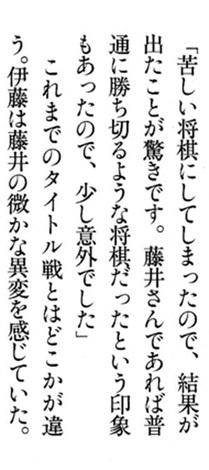 「苦しい将棋にしてしまったので、結果が
出たことが驚きです。藤井さんであれば普
通に勝ち切るような将棋だったという印象
もあったので、少し意外でした」
　これまでのタイトル戦とはどこかが違
う。伊藤は藤井の微かな異変を感じていた。